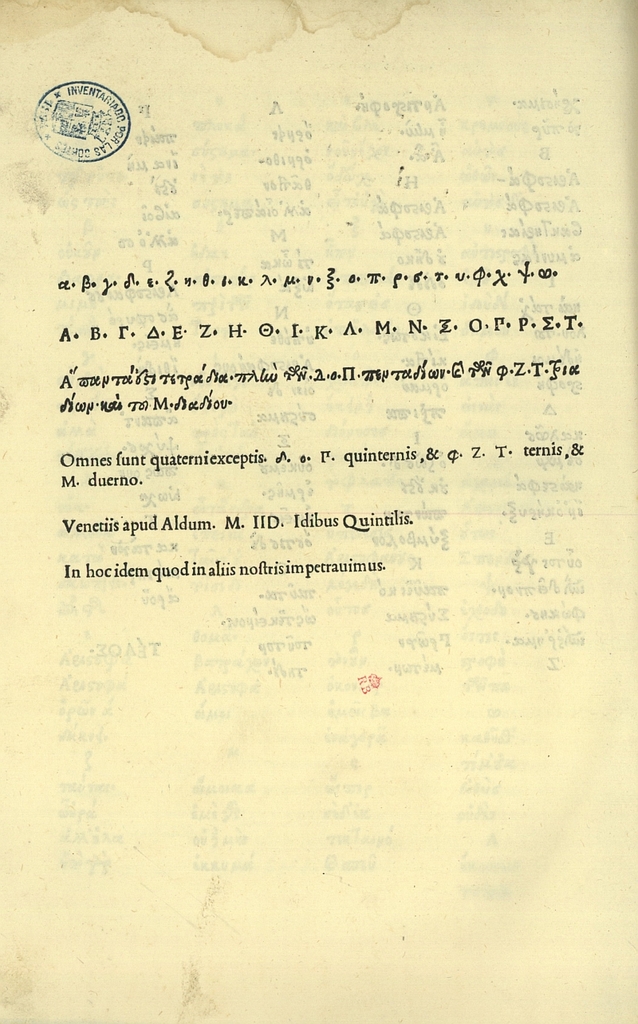 INVENTARIADO POR LAS CORTES
α. β. γ. δ. ε. ζ. η. θ. ι. κ. λ. μ. ν. ξ. ο. π. ρ. σ. τ. υ. φ. χ. ψ. ω.
Α. Β. Γ. Δ. Ε. Ζ. Η. Θ. Ι. Κ. Λ. Μ. Ν. Ξ. Ο. Π. Ρ. Σ. Τ.
Ἅπαντά ἐστι τετράδια. πλὴν τῶν. δ. ο. Π. πενταδίων. καὶ τῶν φ. Ζ. Τ. τρια
δίων. καὶ τοῦ Μ. διαδίου.
Omnes sunt quaterni exceptis. δ. ο. Π. quinternis, & φ. Ζ. Τ. ternis, &
M. duerno.
Venetiis apud Aldum. M. IID. Idibus Quintilis.
In hoc idem quod in aliis nostris impetrauimus.